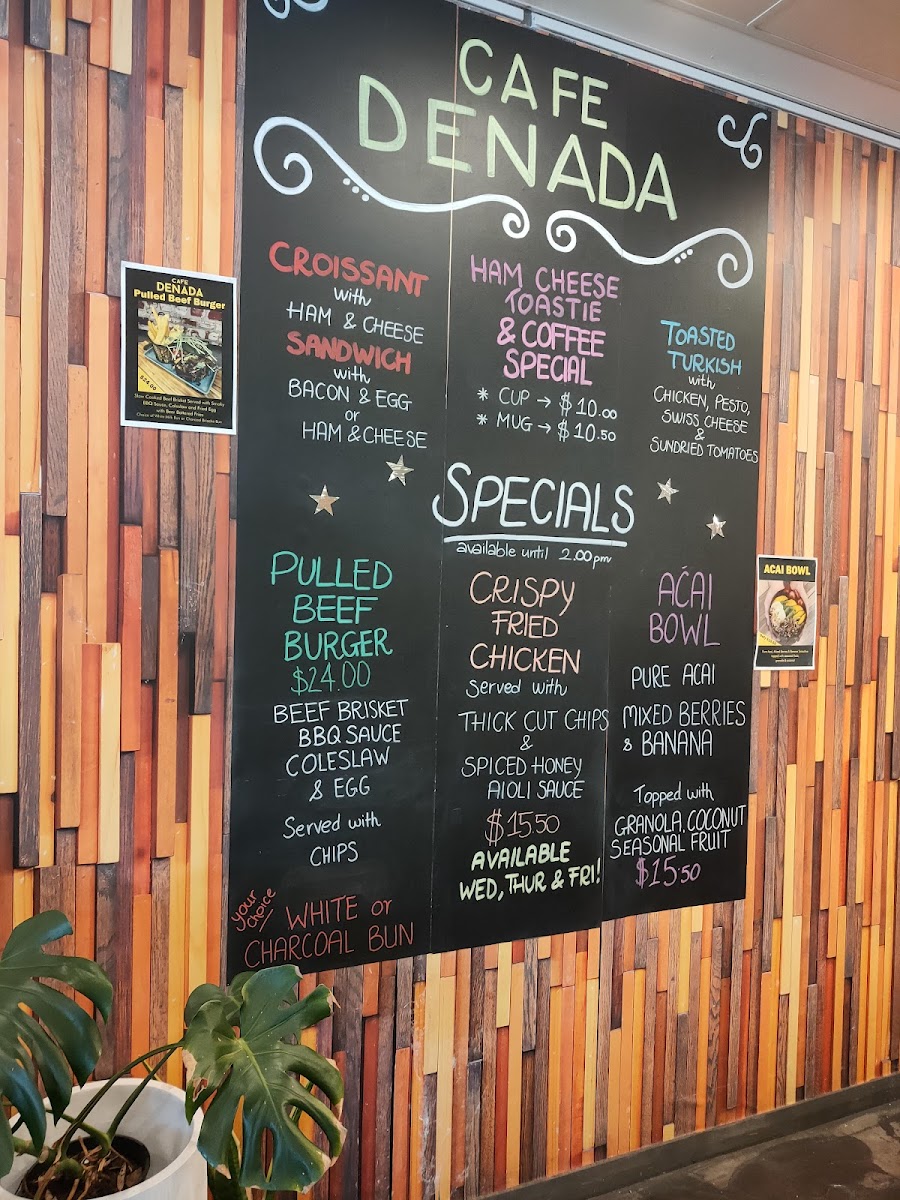 CAFE
DENADA
CROISSANT
with
HAM & CHEESE
SANDWICH
with
BACON & EGG
or
HAM & CHEESE
HAM CHEESE
TOASTIE
& COFFEE
SPECIAL
* CUP → $10.00
* MUG → $10.50
TOASTED
TURKISH
with
CHICKEN, PESTO,
SWISS CHEESE
&
SUNDRIED TOMATOES
SPECIALS
available until 2.00pm
PULLED
BEEF
BURGER
$24.00
BEEF BRISKET
BBQ SAUCE
COLESLAW
& EGG
Served with
CHIPS
your
choice
WHITE or
CHARCOAL BUN
CRISPY
FRIED
CHICKEN
Served with
THICK CUT CHIPS
&
SPICED HONEY
AIOLI SAUCE
$15.50
AVAILABLE
WED, THUR & FRI!
AÇAI
BOWL
PURE ACAI
MIXED BERRIES
& BANANA
Topped with
GRANOLA, COCONUT
SEASONAL FRUIT
$15.50
CAFE
DENADA
Pulled Beef Burger
$24.00
Slow Cooked Beef Brisket Served with Smoky
BBQ Sauce, Coleslaw and Fried Egg
with Beer Battered Fries
ACAI BOWL